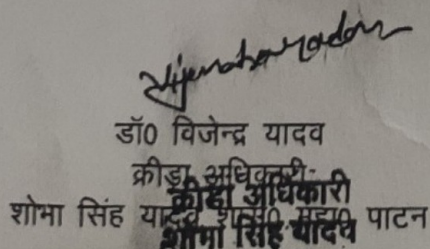 डॉ0 विजेन्द्र यादव
क्रीड़ा अधिकारी
क्रीडा अधिकारी
शोभा सिंह यादव पाटन
शोभा सिंह यादव